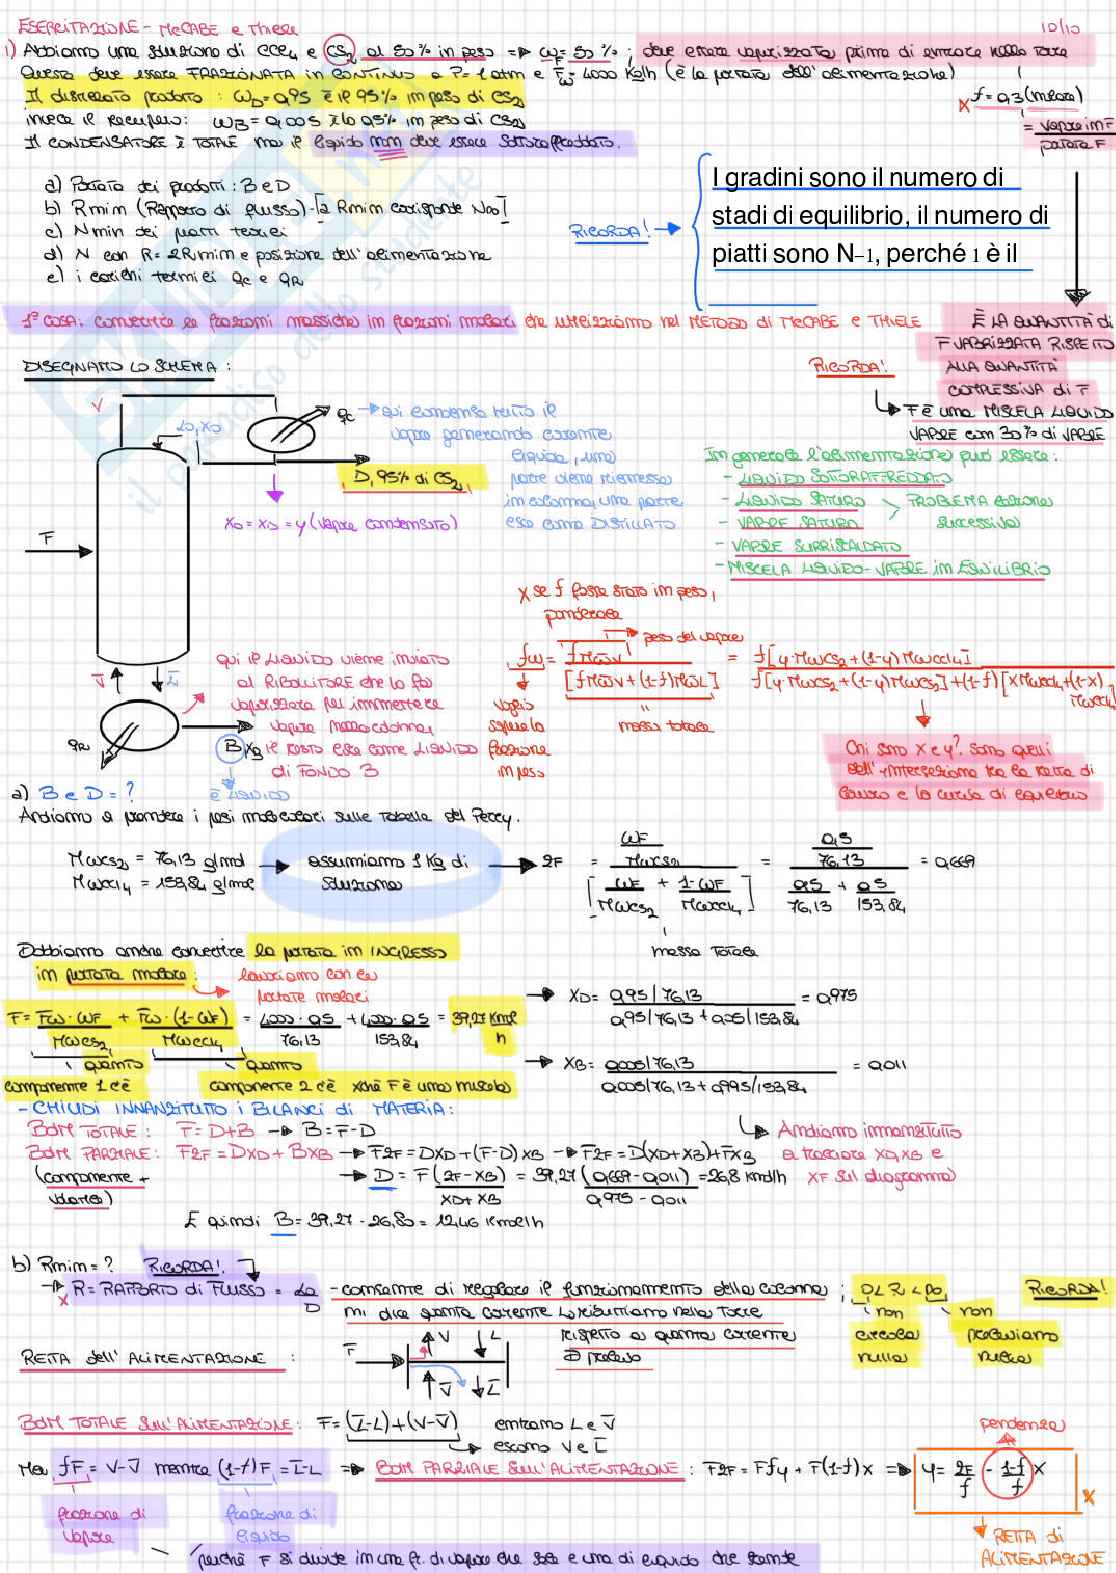 ESERCITAZIONE - McCABE e Thiele
10/10
1) Abbiamo una soluzione di CCl4 e CS2 al 50% in peso => ωF = 50% ; deve essere vaporizzata prima di entrare nella torre
Questa deve essere FRAZIONATA in CONTINUO a P=1 atm e Fω=4000 Kg/h (è la portata dell'alimentazione)
Il distillato prodotto : ωD=0,95 è il 95% in peso di CS2
x f = 0,3 (molare)
invece il recupero: ωB=0,005 è lo 0,5% in peso di CS2
= vapore in F / portata F
Il CONDENSATORE è TOTALE ma il liquido non deve essere sottoraffreddato.
a) Portata dei prodotti : B e D
b) Rmin (Rapporto di flusso) - [a Rmin corrisponde N∞]
c) Nmin dei piatti teorici
d) N con R=2Rmin e posizione dell'alimentazione
e) i carichi termici QC e QR
RICORDA! →
I gradini sono il numero di
stadi di equilibrio, il numero di
piatti sono N-1, perché 1 è il
1° COSA: convertire le frazioni massiche in frazioni molari che utilizziamo nel METODO di McCABE e THIELE
È LA QUANTITÀ di
F VAPORIZZATA RISPETTO
ALLA QUANTITÀ
COMPLESSIVA di F
DISEGNAMO LO SCHEMA :
RICORDA!
F È UNA MISCELA LIQUIDO
VAPORE con 30% di VAPORE
V
L0, xD
QC
qui condensa tutto il
vapore generando corrente
liquida, una
parte viene riemessa
in colonna, una parte
esce come DISTILLATO
D, 95% di CS2
x0 = xD = y (vapore condensato)
F
In generale l'alimentazione può essere:
- LIQUIDO SOTTORAFFREDDATO
- LIQUIDO SATURO
- VAPORE SATURO
PROBLEMA esercizio
successivo
- VAPORE SURRISCALDATO
- MISCELA LIQUIDO-VAPORE IN EQUILIBRIO
x se f fosse stato in peso,
ponderale
peso del vapore
fω = f M̅W̅V / [f M̅W̅V + (1-f) M̅W̅L] = f[y·MWCS2+(1-y)MWCCl4] / f[y·MWCS2+(1-y)MWCS2]+(1-f)[xMWCCl4+(1-x)MWCCl4]
voglio
sapere la
frazione
in peso
massa totale
Chi sono x e y? sono quelli
dell'intersezione tra la retta di
lavoro e la curva di equilibrio
V̅
L̅
QR
B
xB
qui il LIQUIDO viene inviato
al RIBOLLITORE che lo fa
vaporizzare per immettere
vapore nella colonna,
il resto esce come LIQUIDO
di FONDO B
è LIQUIDO
a) B e D = ?
Andiamo a prendere i pesi molecolari sulle Tabelle del Perry.
MWCS2 = 76,13 g/mol
MWCCl4 = 153,84 g/mol
assumiamo 1 Kg di
soluzione
zF = (ωF/MWCS2) / [ωF/MWCS2 + (1-ωF)/MWCCl4] = (0,5/76,13) / (0,5/76,13 + 0,5/153,84) = 0,669
massa Totale
Dobbiamo anche convertire la portata in INGRESSO
in portata molare :
lavoriamo con le
portate molari
F = Fω·ωF/MWCS2 + Fω·(1-ωF)/MWCCl4 = 4000·0,5/76,13 + 4000·0,5/153,84 = 39,27 Kmol/h
quanto
componente 1 c'è
quanto
componente 2 c'è xchè F è una miscela
→ xD = 0,95/76,13 / (0,95/76,13+0,05/153,84) = 0,975
→ xB = 0,005/76,13 / (0,005/76,13+0,995/153,84) = 0,011
- CHIUDI INNANZITUTTO i BILANCI di MATERIA :
BdM TOTALE : F = D+B → B = F-D
BdM PARZIALE : FzF = DxD + BxB → FzF = DxD+(F-D)xB → FzF = D(xD+xB)+FxB
(componente +
volatile)
→ D = F(zF-xB / xD+xB) = 39,27(0,669-0,011 / 0,975-0,011) = 26,8 kmol/h
Andiamo innanzitutto
a tracciare xD, xB e
xF sul diagramma
E quindi B = 39,27 - 26,80 = 12,46 Kmol/h
b) Rmin = ? RICORDA!
→ R = RAPPORTO di FLUSSO = L0/D - consente di regolare il funzionamento della colonna ;
mi dice quanta corrente L0 ributtiamo nella Torre
rispetto a quanta corrente
D prelevo
0 < R < ∞
non
circola
nulla
non
preleviamo
nulla
RICORDA!
RETTA dell'ALIMENTAZIONE :
F
V
L
V̅
L̅
BdM TOTALE SULL'ALIMENTAZIONE : F = (L̅-L)+(V-V̅)
entrano L e V̅
escono V e L̅
Ma fF = V-V̅ mentre (1-f)F = L̅-L => BdM PARZIALE SULL'ALIMENTAZIONE : FzF = Ffy + F(1-f)x => y = zF/f - (1-f)/f x
pendenza
frazione di
vapore
frazione di
liquido
RETTA di
ALIMENTAZIONE
perchè F si divide in una fr. di vapore che sale e una di liquido che scende